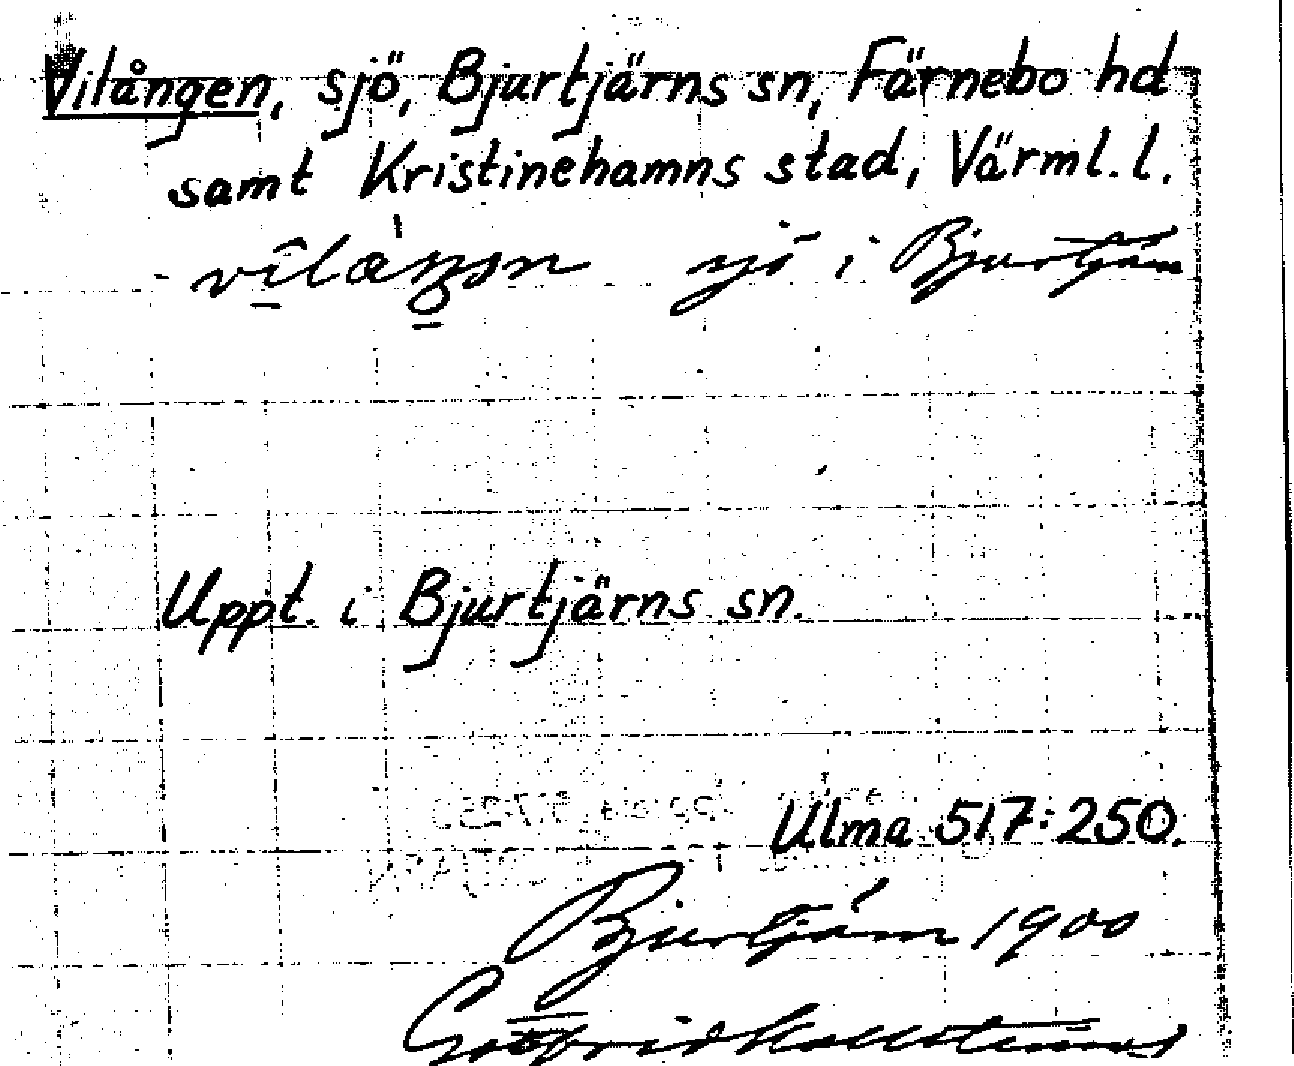 Vilången, sjö, Bjurtjärns sn, Färnebo hd
samt Kristinehamns stad, Värml. l.
sjö i Bjurtjärn
Uppt. i Bjurtjärns sn.
Ulma 517:250.
Bjurtjärn 1900
Gottfrid Kallstenius